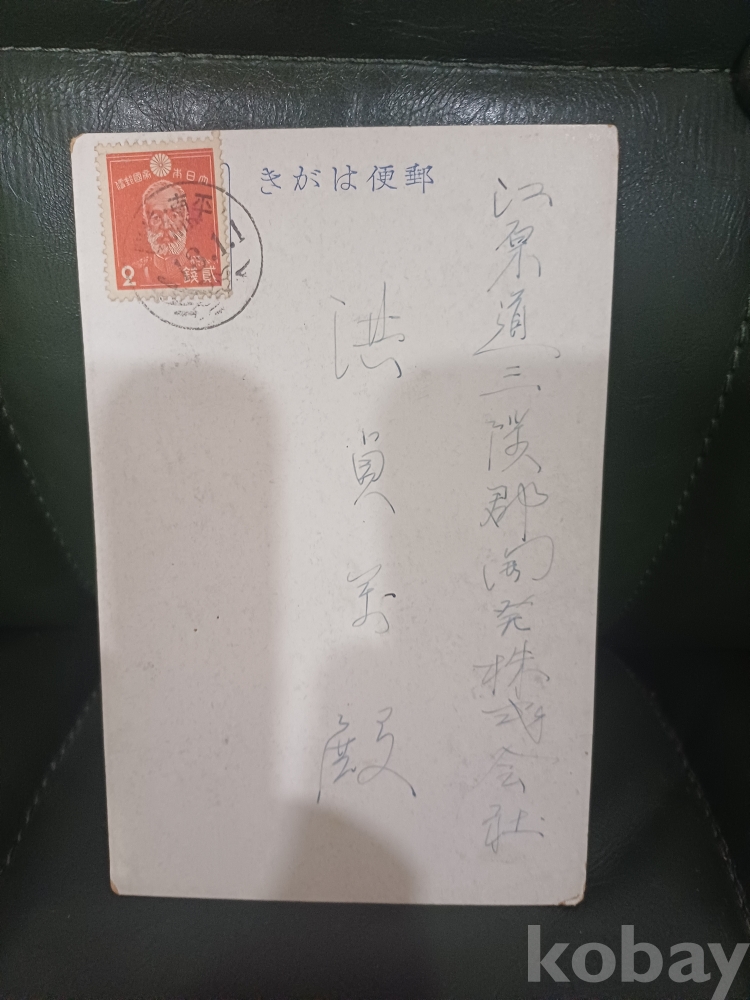 きがは便郵
江原道三陟郡開発株式会社
洪貞萬殿
大日本帝國郵便
2
貳銭
kobay